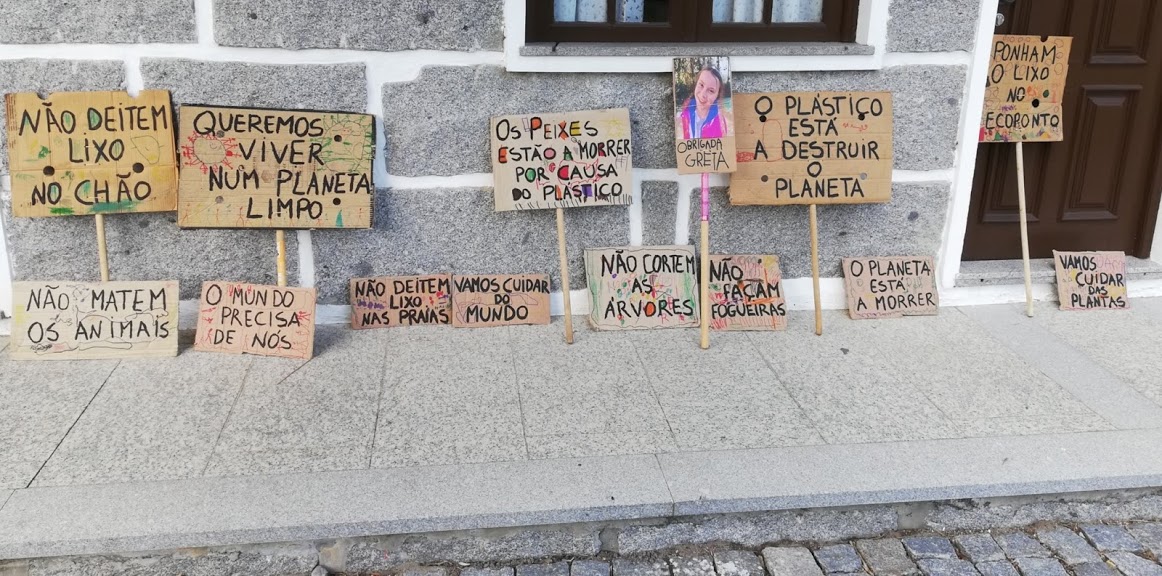 NÃO DEITEM
LIXO
NO CHÃO
QUEREMOS
VIVER
NUM PLANETA
LIMPO
OS PEIXES
ESTÃO A MORRER
POR CAUSA
DO PLÁSTICO
OBRIGADA
GRETA
O PLÁSTIÇO
ESTÁ
A DESTRUIR
O
PLANETA
PONHAM
O LIXO
NO
ECOPONTO
NÃO MATEM
OS ANIMAIS
O MUNDO
PRECISA
DE NÓS
NÃO DEITEM
LIXO
NAS PRAIAS
VAMOS CUIDAR
DO
MUNDO
NÃO CORTEM
AS
ÁRVORES
NÃO
FAÇAM
FOGUEIRAS
O PLANETA
ESTÁ
A MORRER
VAMOS
CUIDAR
DAS
PLANTAS